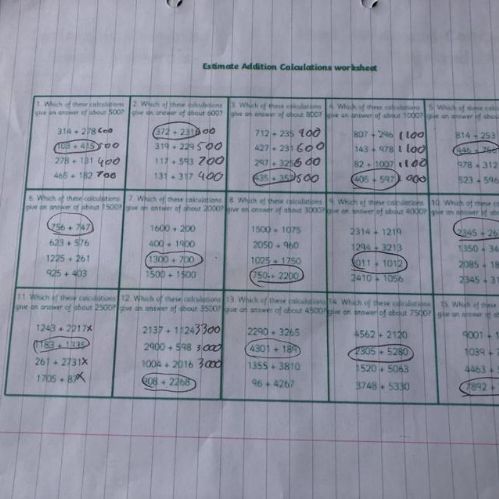 Estimate Addition Calculations worksheet
1. Which of these calculations give an answer of about 500?
314 + 278 600
103 + 415 500
278 + 131 400
465 + 182 700
2. Which of these calculations give an answer of about 600?
372 + 231 600
319 + 229 500
117 + 593 700
131 + 317 400
3. Which of these calculations give an answer of about 800?
712 + 235 900
427 + 231 600
297 + 325 600
435 + 800
4. Which of these calculations give an answer of about 1000?
807 + 296 1100
143 + 978 1100
82 + 1007 1100
405 + 597
5. Which of these calcul
give an answer of about
814 + 253
978 + 312
523 + 596
6. Which of these calculations give an answer of about 1500?
756 + 747
623 + 576
1225 + 261
925 + 403
7. Which of these calculations give an answer of about 2000?
1600 + 200
400 + 1900
1300 + 700
1500 + 1500
8. Which of these calculations give an answer of about 3000?
1500 + 1075
2050 + 960
1025 + 1750
750 + 2200
9. Which of these calculations give an answer of about 4000?
2314 + 1219
1294 + 3213
3011 + 1012
2410 + 1056
10. Which of these
give an answer of
2345 + 26
1350 + 34
2085 + 18
2345 + 31
11. Which of these calculations give an answer of about 2500?
1243 + 2017 x
1183 +
261 + 2731 x
1705 + x
12. Which of these calculations give an answer of about 3500?
2137 + 1124 3300
2900 + 598 3000
1004 + 2016 3000
908 + 2268
13. Which of these calculations give an answer of about 4500?
2290 + 3265
4301 + 189
1355 + 3810
96 + 4267
14. Which of these calculations give an answer of about 7500?
4562 + 2120
2305 + 5280
1520 + 5063
3748 + 5330
15. Which of these
give an answer of
9001 +
1039 +
4463 +
7892 +